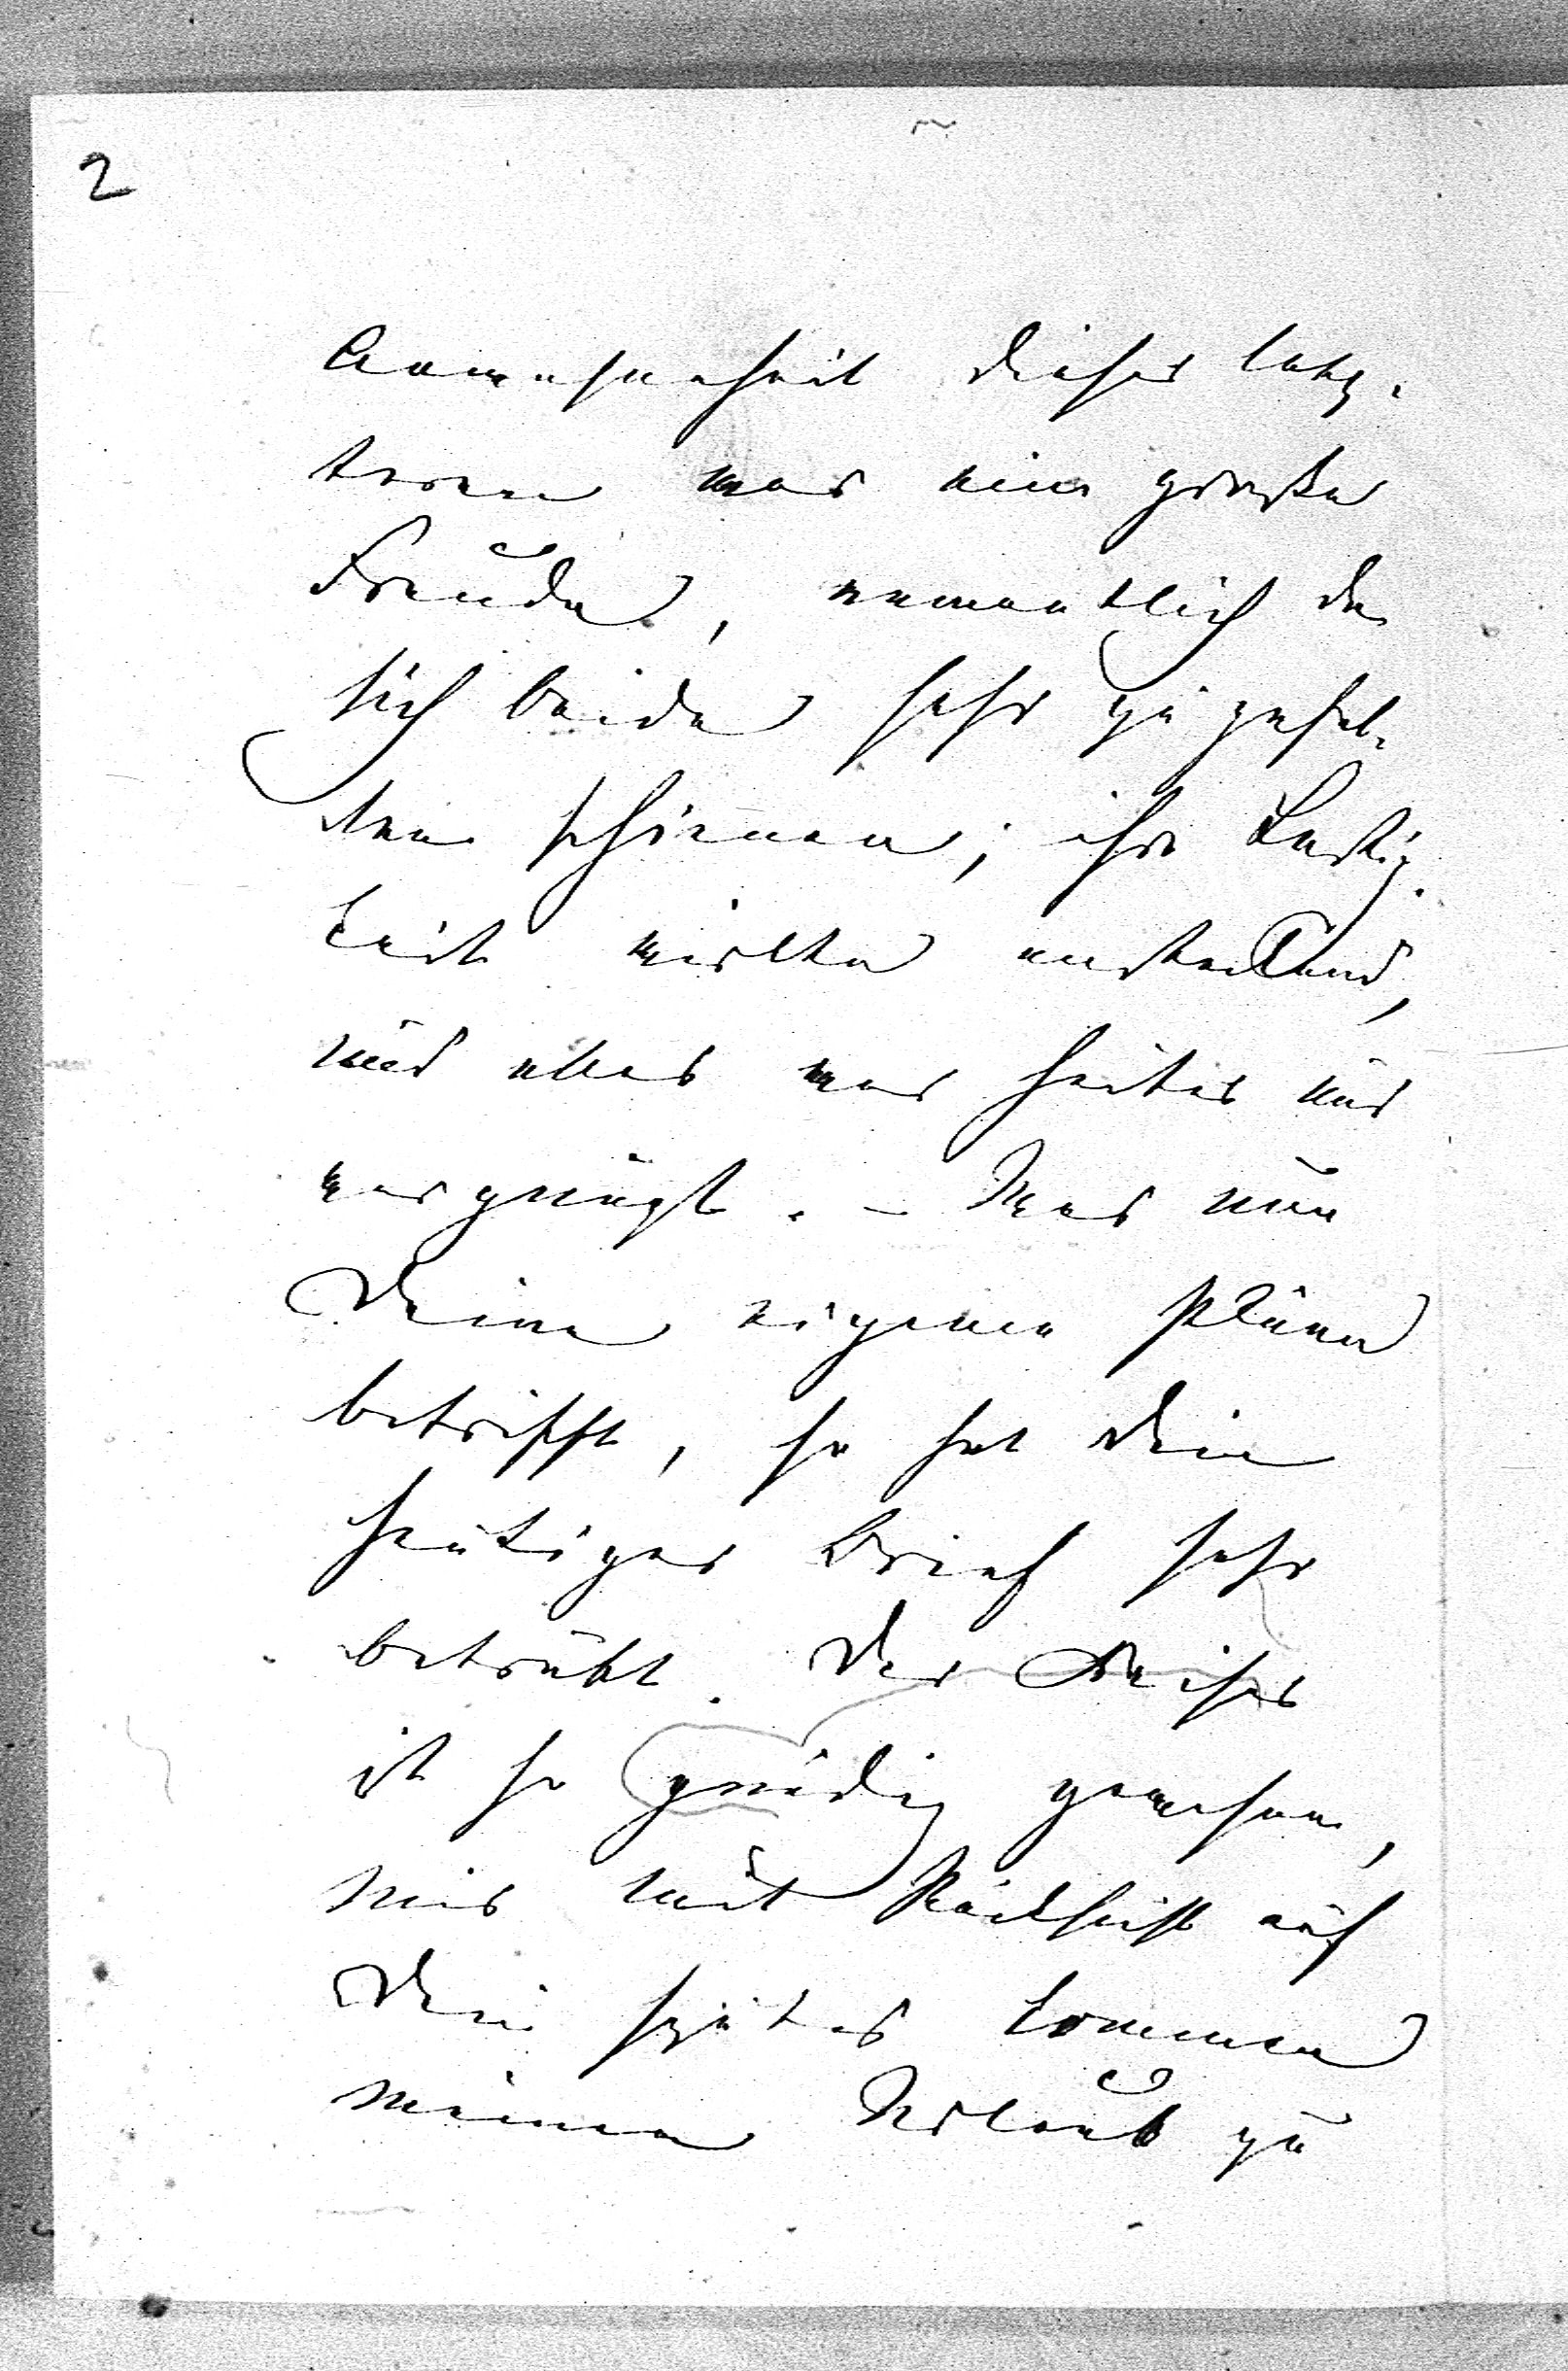 2
Anwesenheit dieser letz-
teren war eine große
Freude, namentlich da
sich beide sehr zu gefal-
len schienen; ihre Lustig-
keit wirkte ansteckend,
und alles war heiter und
vergnügt. – Was nun
Deine eigenen Pläne
betrifft, so hat Dein
heutiger Brief sehr
betrübt. Der Kaiser
ist so gnädig gewesen,
mir mit Rücksicht auf
Dein spätes Kommen
meinen Urlaub zu